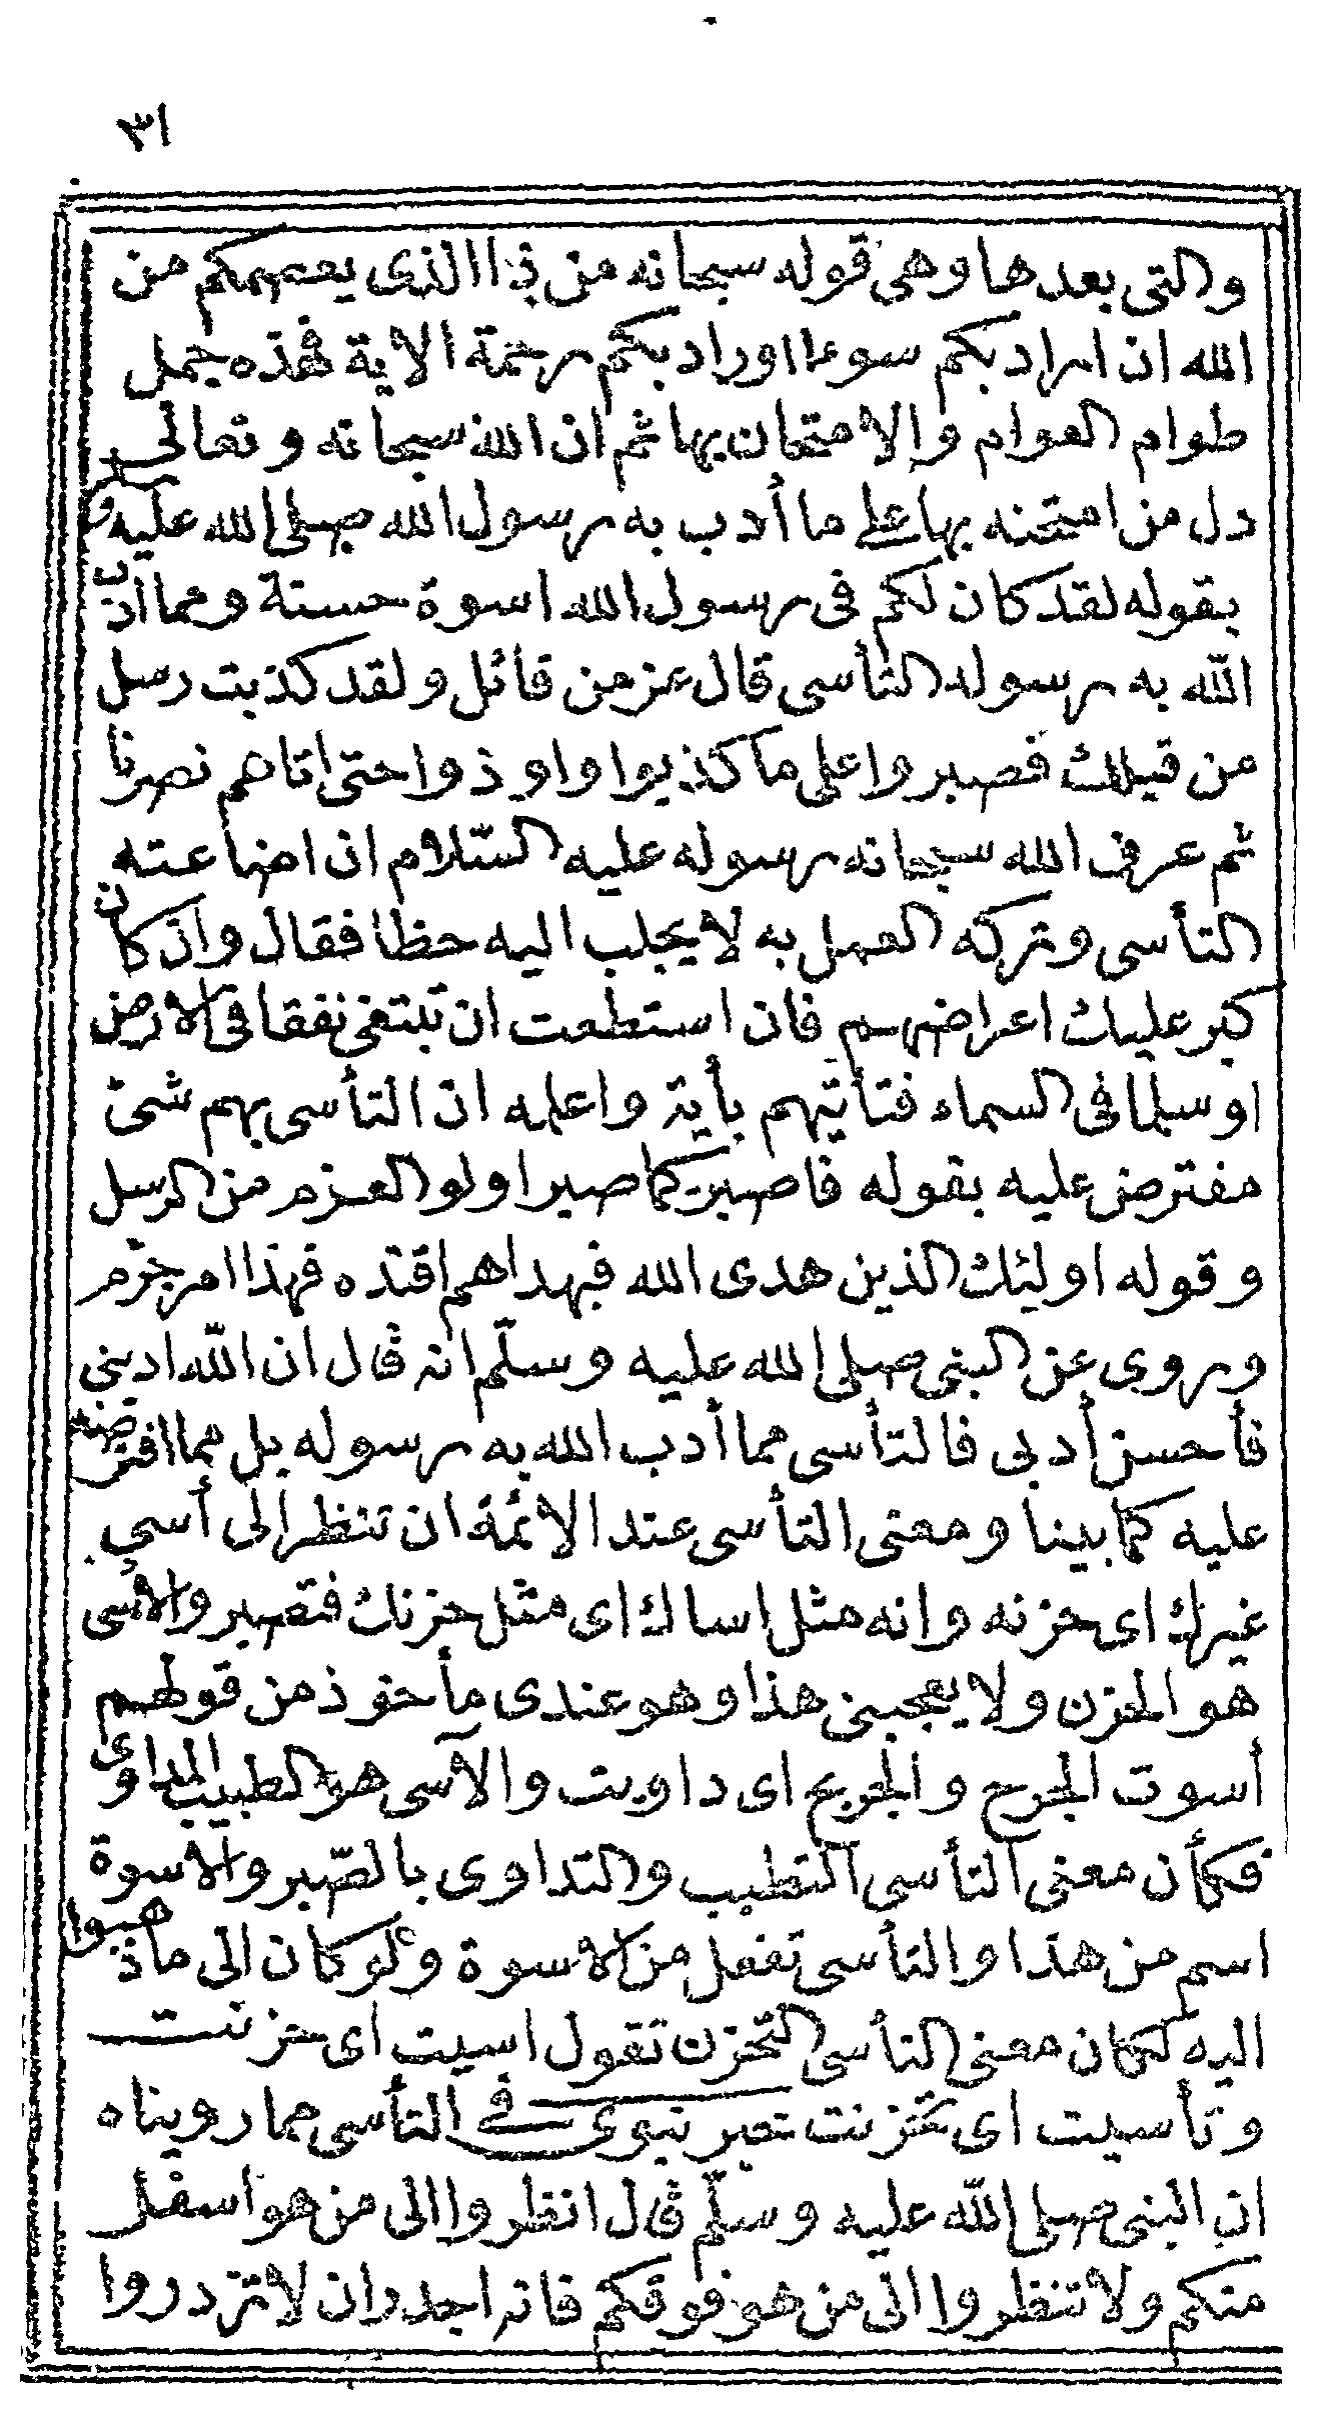 ٣١
والتى بعدها وهى قوله سبحانه من ذا الذى يعصمكم من
الله ان اراد بكم سوءا اوراد بكم رحمة الاية فهذه جمل
طوام العوام والامتحان بها ثم ان الله سبحانه وتعالى
دل من امتحنه بها على ما أدب به رسول الله صلى الله عليه و
بقوله لقد كان لكم فى رسول الله اسوة حسنة ومما ادب
الله به رسوله التأسى قال عز من قائل ولقد كذبت رسل
من قبلك فصبروا على ما كذبوا واوذوا حتى اتاهم نصرنا
ثم عرف الله سبحانه رسوله عليه السّلام ان اضاعته
التأسى وتركه العمل به لا يجلب اليه حظا فقال وان كان
كبر عليك اعراضهم فان استطعت ان تبتغى نفقا فى الارض
او سلما فى السماء فتأتيهم بأية واعلمه ان التأسى بهم شئ
مفترض عليه بقوله فاصبر كما صبر اولو العزم من الرسل
وقوله اولئك الذين هدى الله فبهداهم اقتده فهذا امر جزم
وروى عن النبى صلى الله عليه وسلّم انه قال ان الله ادبنى
فأحسن أدبى فالتأسى مما أدب الله به رسوله بل مما افترضه
عليه كما بينا ومعنى التأسى عند الائمة ان تنظر الى أسى
غيرك اى حزنه وانه مثل اساك اى مثل حزنك فتصبر والاسى
هو الحزن ولا يعجبنى هذا وهو عندى مأخوذ من قولهم
أسوت الجرح والجريح اى داويت والآسى هو الطبيب المداوى
فكأن معنى التأسى التطبب والتداوى بالصّبر والاسوة
اسم من هذا والتأسى تفعل من الاسوة ولو كان الى ما ذهبوا
اليه لكان معنى التأسى التحزن تقول اسيت اى حزنت
وتأسيت اى تحزنت خبر نبوى فى التأسى مما رويناه
ان النبى صلى الله عليه وسلّم قال انظروا الى من هو أسفل
منكم ولا تنظروا الى من هو فوقكم فانه اجدر ان لا تزدروا